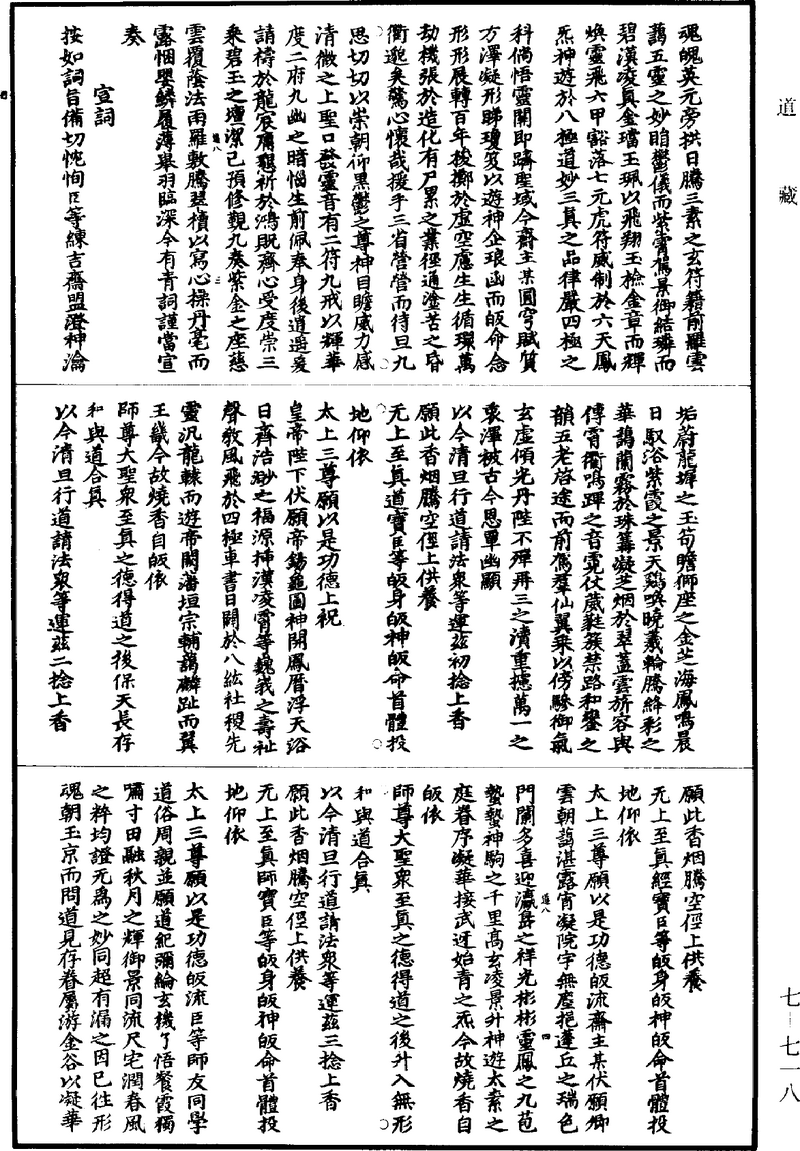 道藏
魂魄英元旁拱日騰三素之玄符籍前羅雲
藹五靈之妙眙鬱儀而紫霄駕景御結璘而
碧漢凌真金璫玉珮以飛翔玉檢金章而輝
煥靈飛六甲豁落七元虎符威制於六天鳳
炁神遊於八極道妙三真之品律嚴四極之
科倘悟靈關即躋聖域今齋主某圓穹賦質
方澤凝形睇瓊笈以遊神企琅函而皈命念
形形展轉百年梭擲於虛空慮生生循環萬
劫機張於造化有尸累之業徑通塗苦之昏
衢邈矣驚心懷哉援手三省營營而待旦九
思切切以崇朝仰黑鬱之尊神目瞻威力感
清微之上聖口發靈音有二符九戒以輝華
度二府九幽之暗惱生前佩奉身後逍遥爰
請禱於龍宸庸懇祈於鴻貺齊心受度崇三
乘碧玉之壇潔己預修覲九奏紫金之座慈
雲覆蔭法雨羅敷騰翠櫝以寫心操丹毫而
露悃嬰鱗履薄舉羽臨深今有青詞謹當宣
奏
宣詞
按如詞旨備切忱恂臣等練吉齋盟澄神瀹
垢蔚龍墀之玉笋瞻獅座之金芝海鳳鳴晨
日馭浴紫霞之景天鷄喚曉羲輪騰絳彩之
華藹蘭霧於珠篝凝芝烟於翠蓋雲旂容與
傳霄衢鳴蹕之音霓仗葳蕤簇禁路和鑾之
韻五老啓途而前駕羣仙翼乘以傍驂御氣
玄虛傾光丹陛不殫再三之瀆重攄萬一之
衷澤被古今恩覃幽顯
以今清旦行道請法衆等運玆初捻上香
願此香烟騰空徑上供養
无上至真道寶臣等皈身皈神皈命首體投
地仰依
太上三尊願以是功德上祝
皇帝陛下伏願帝錫龜圖神開鳳曆浮天浴
日齊浩砂之福源揷漢凌霄等巍峩之壽祉
聲教風飛於四極車書日闢於八紘社稷先
靈汎龍棘而遊帝闕藩垣宗輔藹麟趾而翼
王畿今故燒香自皈依
師尊大聖衆至真之德得道之後保天長存
和與道合真
以今清旦行道請法衆等運玆二捻上香
願此香烟騰空徑上供養
无上至真經寶臣等皈身皈神皈命首體投
地仰依
太上三尊願以是功德皈流齋主某伏願卿
雲朝藹湛露宵凝院宇無塵挹蓬丘之瑞色
門闌多喜迎瀛島之祥光彬彬靈鳳之九苞
蟄蟄神駒之千里高玄凌景升神遊太素之
庭眷序凝華接武迓始青之炁今故燒香自
皈依
師尊大聖衆至真之德得道之後升入無形
和與道合真
以今清旦行道請法衆等運玆三捻上香
願此香烟騰空徑上供養
无上至真師寶臣等皈身皈神皈命首體投
地仰依
太上三尊願以是功德皈流臣等師友同學
道俗周親並願道紀彌綸玄機了悟餐霞獨
嘯寸田融秋月之輝御景同流尺宅潤春風
之粹均證无爲之妙同超有漏之因已往形
魂朝玉京而問道見存眷屬游金谷以凝華
七—七一八